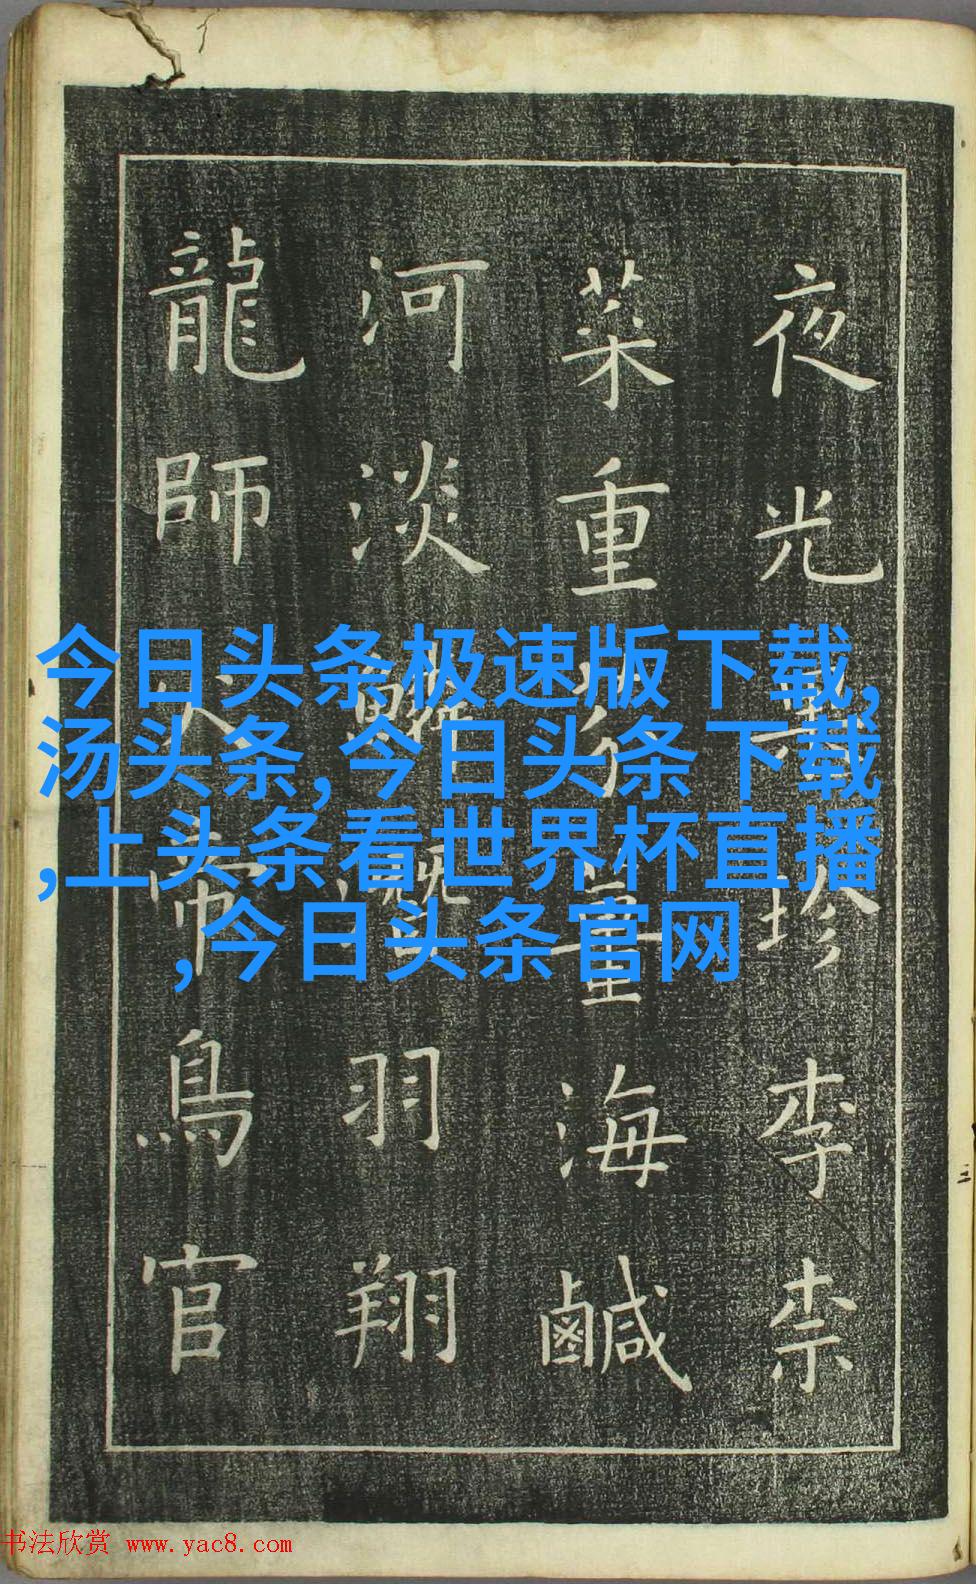 夜光珍李柰
菜重芥薑海鹹
河淡鱗潛羽翔
龍師火帝鳥官
今日头条极速版下载,
汤头条,今日头条下载
,上头条看世界杯直播
,今日头条官网
书法欣赏 www.yac8.com